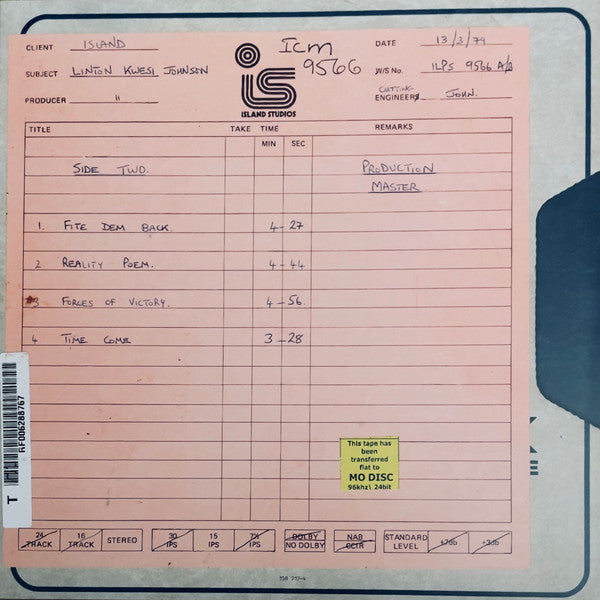 CLIENT ISLAND
ICM 9566
DATE 13/3/79
SUBJECT LINTON KWESI JOHNSON
W/S No. ILPS 9566 A/B
PRODUCER "
CUTTING
ENGINEERS JOHN.
iS
ISLAND STUDIOS
TITLE TAKE TIME REMARKS
MIN SEC
SIDE TWO. PRODUCTION
MASTER
1. FITE DEM BACK. 4-27
2 REALITY POEM. 4-44
3 FORCES OF VICTORY. 4-56.
4 TIME COME 3-28
RF006288767
T
This tape has
been
transferred
flat to
MO DISC
96khz\ 24bit
24 TRACK 16 TRACK STEREO 30 IPS 15 IPS 7½ IPS DOLBY NO DOLBY NAB CCIR STANDARD LEVEL +7db +3db